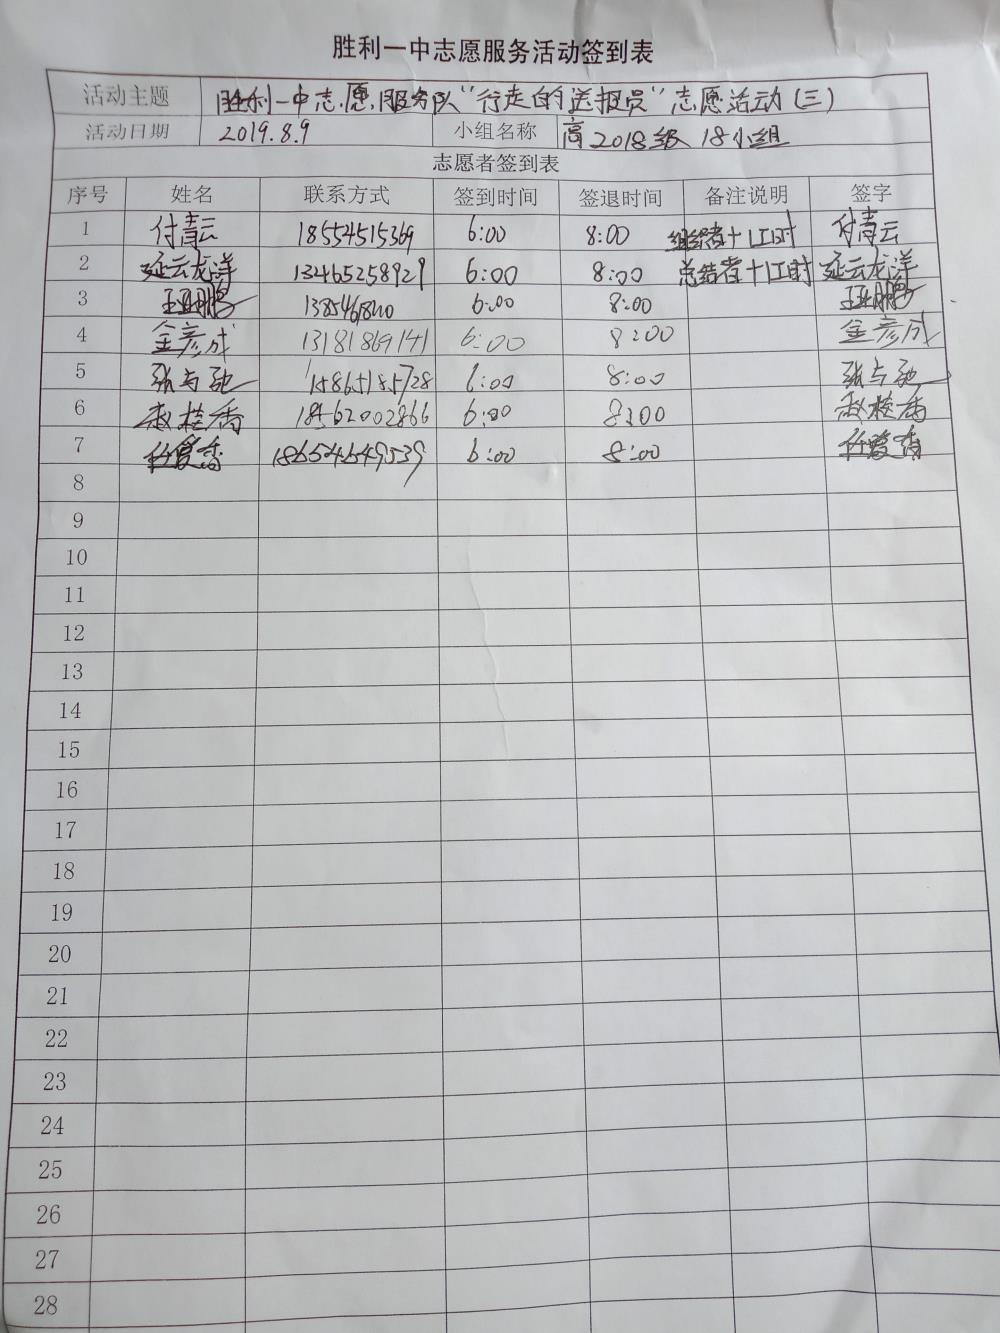 胜利一中志愿服务活动签到表
活动主题 胜利一中志愿服务队“行走的送报员”志愿活动(三)
活动日期 2019.8.9 小组名称 高2018级 18小组
志愿者签到表
序号 姓名 联系方式 签到时间 签退时间 备注说明 签字
1 付青云 18554515369 6:00 8:00 组织者+1工时 付青云
2 延云龙洋 13465258929 6:00 8:00 总结者+1工时 延云龙洋
3 王亚鹏 6:00 8:00 王亚鹏
4 金彦成 13181869141 6:00 8:00 金彦成
5 张与弛 15865185728 6:00 8:00 张与弛
6 赵桂香 18562002866 6:00 8:00 赵桂香
7 任爱香 18654649539 6:00 8:00 任爱香
8
9
10
11
12
13
14
15
16
17
18
19
20
21
22
23
24
25
26
27
28